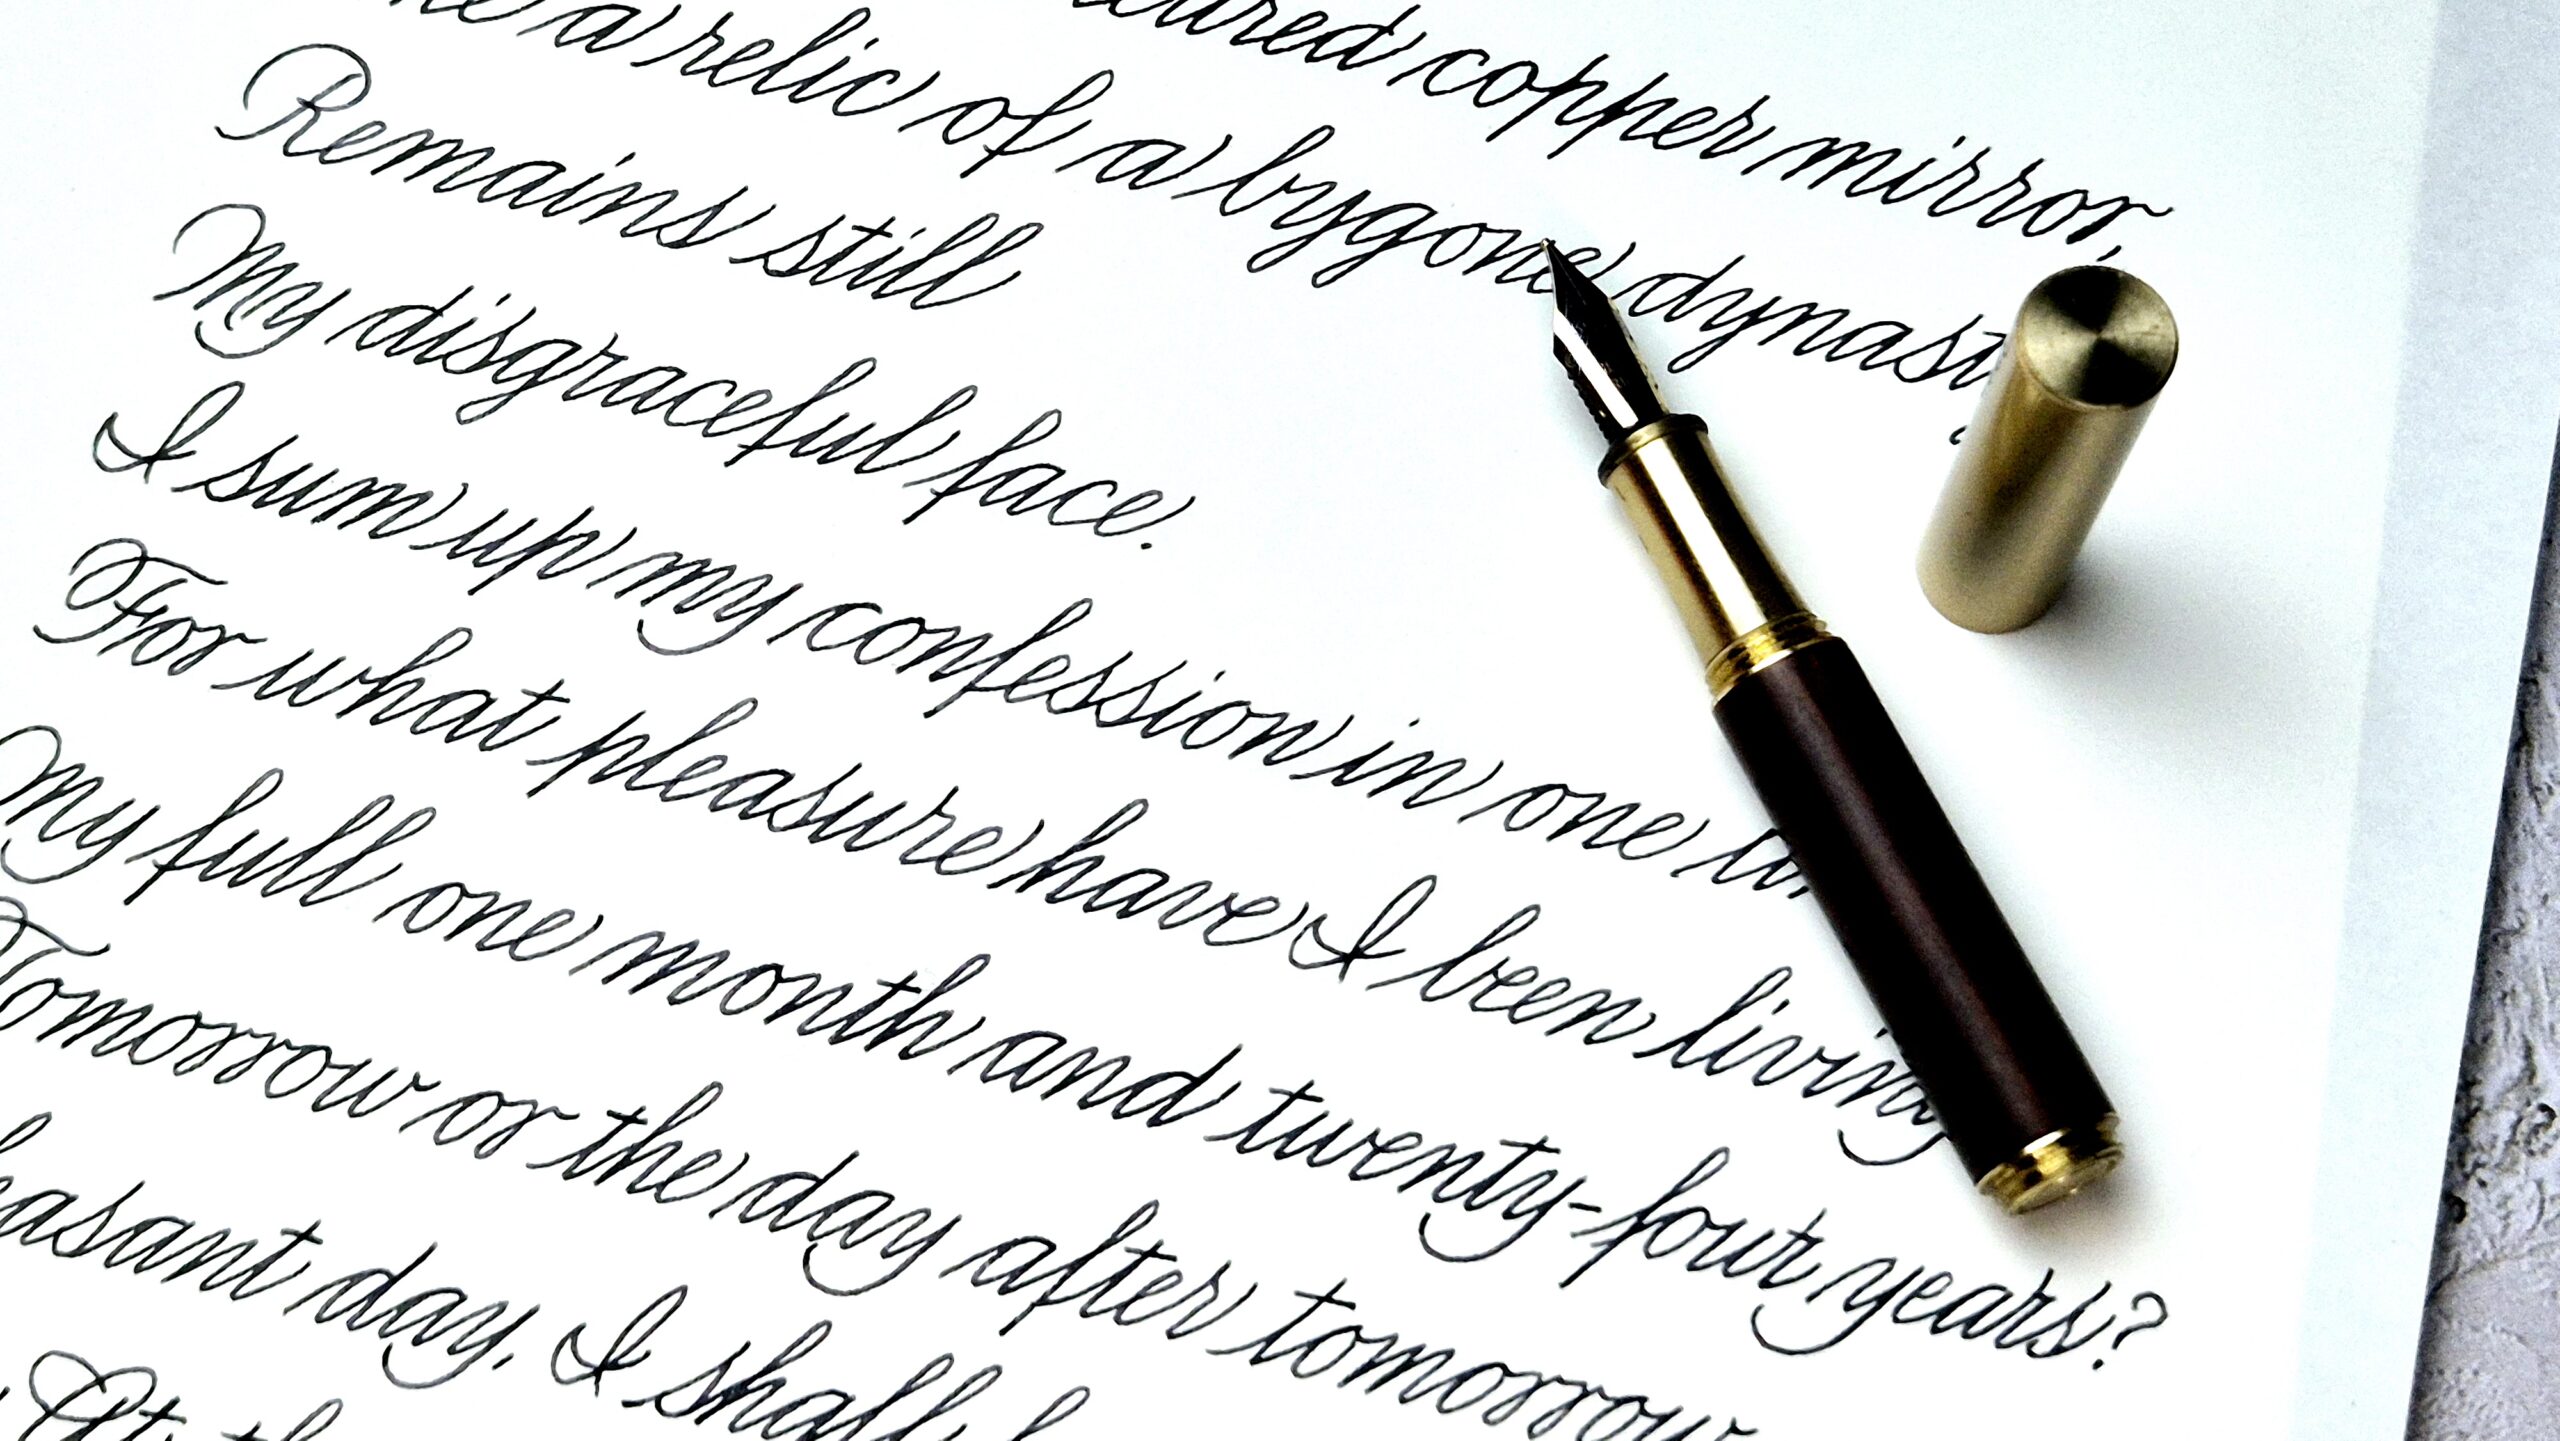 copper mirror,
a relic of a bygone
Remains still
My disgraceful face.
I sum up my confession in one
For what pleasure have I been living
My full one month and twenty-four years?
Tomorrow or the day after tomorrow
day, I shall